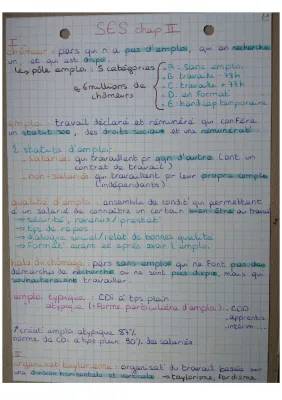 SES chap II
I
chômeur : pers qui n'a pas d'emploi, qui en recherche
un, et qui est dispo.
Les pôle emploi : 5 catégories
A : sans emploi
B : travaille - 78h
C : travaille + 78h
D : en format°
E : handicap temporaire
6 millions de
chômeurs
emploi : travail déclaré et rémunéré qui confère
un statut soc, des droits sociaux et une rémunérat°
2 statuts d'emploi :
- salariés qui travaillent pr qqn d'autre (ont un
contrat de travail)
- non-salariés qui travaillent pr leur propre compte
(indépendants)
qualité d'emploi : ensemble de condit° qui permettent
à un salarié de connaître un certain bien être au travail
→ sécurité, horaires / prestat°
→ tps de repos
→ dialogue social / relat° de bonnes qualité
→ Format° avant et après avoir l'emploi
halo du chômage : pers sans emploi qui ne font pas des
démarches de recherche ou ne sont pas dispo, mais qui
souhaiteraient travailler.
emploi typique : CDI à tps plein
atypique (= Forme particulière d'emploi) → CDD
apprentis
intérim ...
création emploi atypique 87%
norme de CDI à tps plein 80% des salariés
II
organisat° taylorienne : organisat° du travail basée sur
une division horizontale et verticale → taylorisme, fordisme